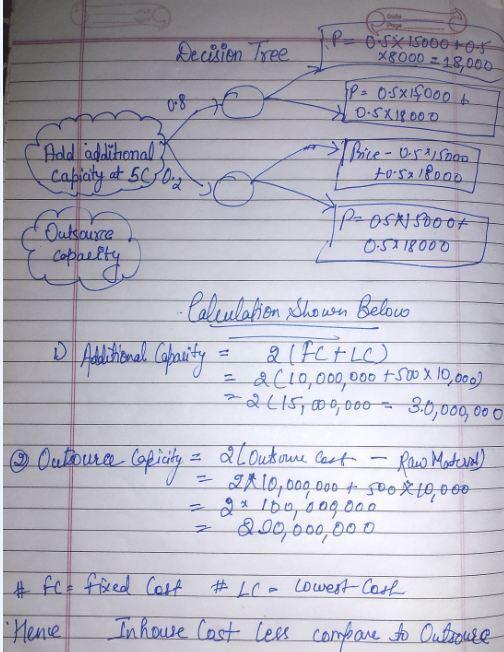 Date
Page
Decision Tree
P = 0.5 x 15000 + 0.5
x 8000 = 18,000
0.8
P = 0.5 x 15,000 +
0.5 x 18000
Add additional
Capicity at SC
0.2
Price - 0.5 x 15000
+ 0.5 x 18000
P = 0.5 x 15000 +
0.5 x 18000
Outsource
capacity
Calculation Shown Below
1) Additional Capacity = 2 (FC + LC)
= 2 (10,000,000 + 500 x 10,000)
= 2 (15,000,000 = 3.0,000,000
② Outsource Capicity = 2 (Outsoure Cost - Raw Material)
= 2 x 10,000,000 + 500 x 10,000
= 2 x 100,000,000
= 200,000,000
# FC = Fixed Cost # LC = Lowest Cost
Hence Inhouse Cost less compare to Outsource